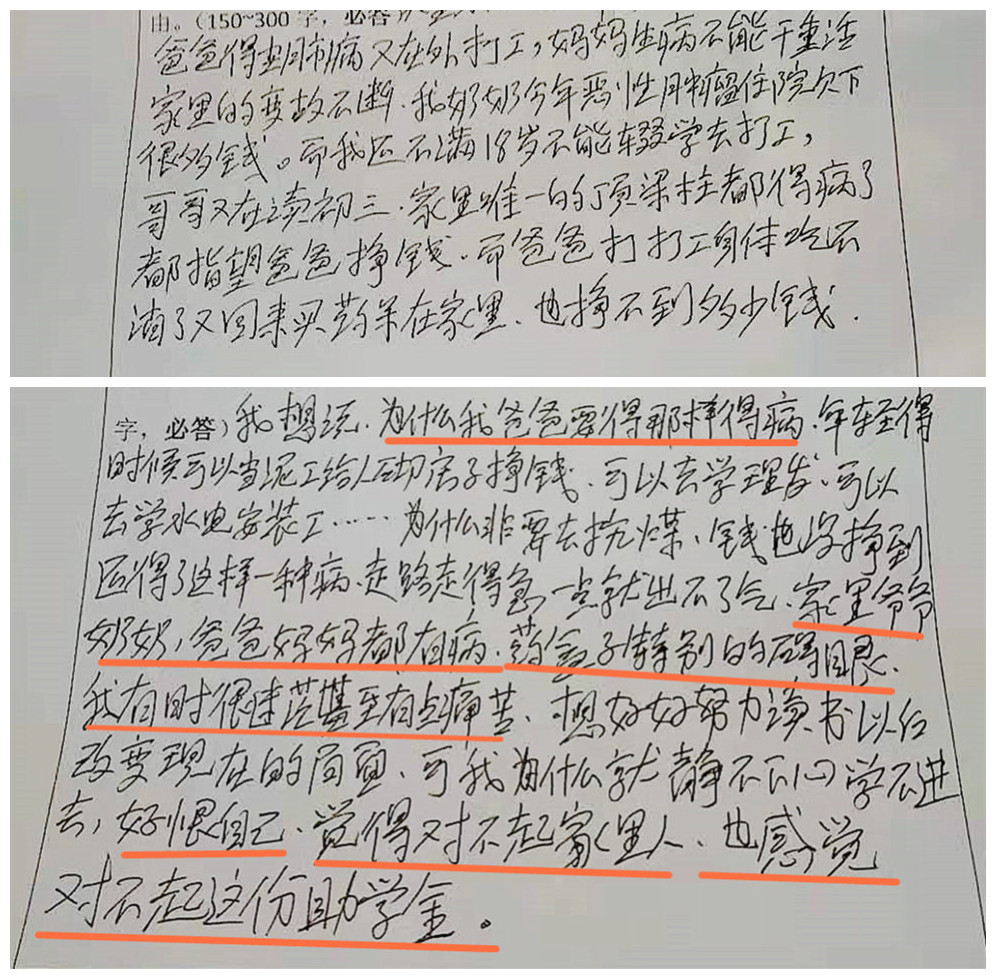 由。（150~300字，必答）
爸爸得尘肺病又在外打工，妈妈生病不能干重活
家里的变故不断．我奶奶今年恶性肿瘤住院欠下
很多钱。而我还不满18岁不能辍学去打工，
哥哥又在读初三．家里唯一的顶梁柱都得病了
都指望爸爸挣钱．而爸爸打打工身体吃不
消了又回来买药呆在家里．也挣不到多少钱．
字，必答）我想说．为什么我爸爸要得那样得病．年轻得
时候可以当泥工给人砌房子挣钱．可以去学理发．可以
去学水电安装工……为什么非要去挖煤、钱也没挣到
还得了这样一种病．走路走得急一点就出不了气．家里爷爷
奶奶，爸爸妈妈都有病．药盒子特别的碍眼．
我有时很迷茫甚至有点痛苦．想好好努力读书以后
改变现在的局面．可我为什么就静不下心学不进
去，好恨自己．觉得对不起家里人．也感觉
对不起这份助学金。